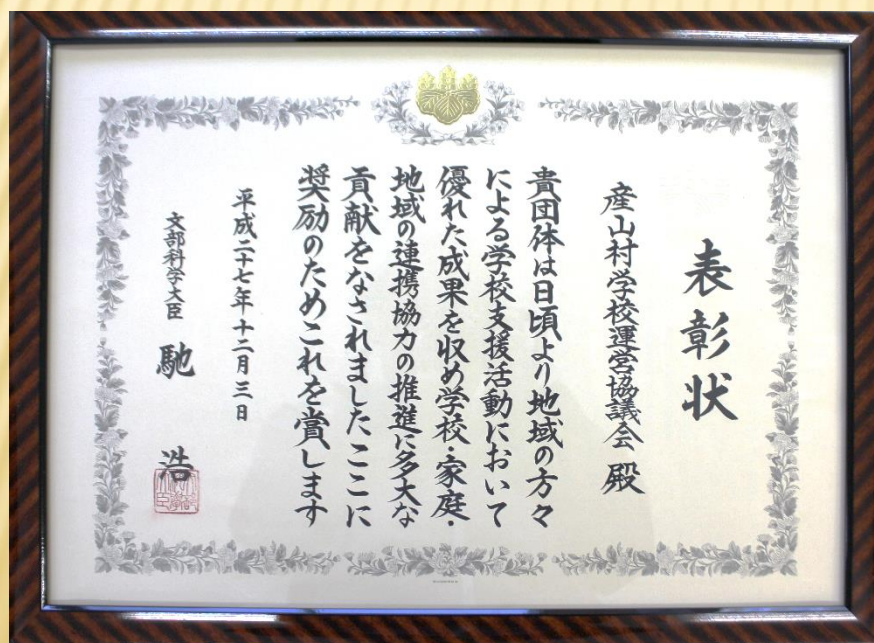 表彰状
産山村学校運営協議会 殿
貴団体は日頃より地域の方々
による学校支援活動において
優れた成果を収め学校・家庭・
地域の連携協力の推進に多大な
貢献をなされました ここに
奨励のためこれを賞します
平成二十七年十二月三日
文部科学大臣 馳 浩